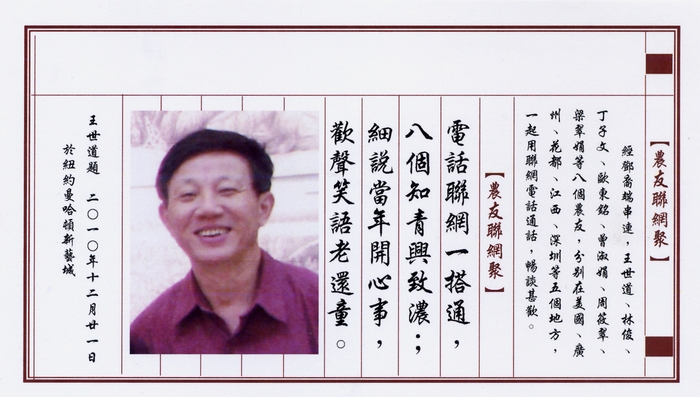 【農友聯網聚】
經鄧喬端串連，王世道、林俊、
丁子文、歐東銘、曾淑娟、周筱翠、
梁翠娟等八個農友，分別在美國、廣
州、花都、江西、深圳等五個地方，
一起用聯網電話通話，暢談甚歡。
【農友聯網聚】
電話聯網一搭通，
八個知青興致濃；
細說當年開心事，
歡聲笑語老還童。
王世道題 二〇一〇年十二月廿一日
於紐約曼哈頓新藝城